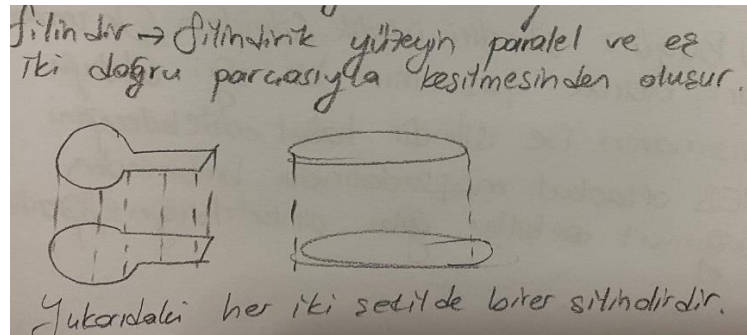 Silindir → Silindirik yüzeyin paralel ve eş
iki doğru parçasıyla kesilmesinden oluşur.
Yukarıdaki her iki şekilde birer silindirdir.